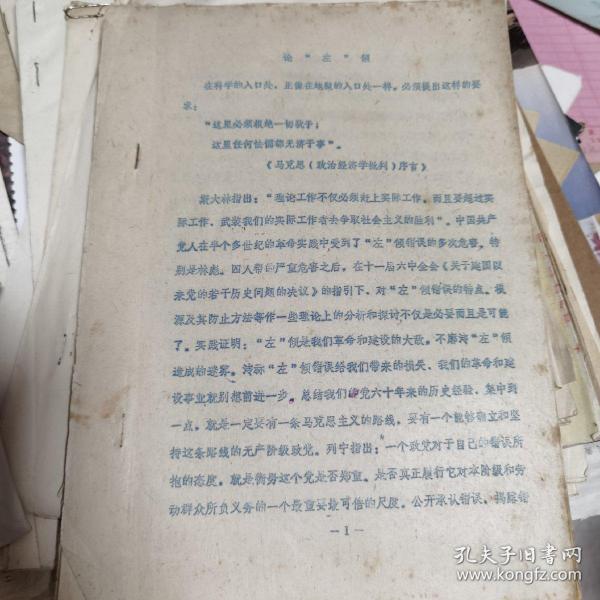 论“左”倾
在科学的入口处，正象在地狱的入口处一样，必须提出这样的要
求：
“这里必须根绝一切犹予；
这里任何怯懦都无济于事”。
《马克思（政治经济学批判）序言》
斯大林指出：“理论工作不仅必须赶上实际工作，而且要超过实
际工作，武装我们的实际工作者去争取社会主义的胜利”。中国共产
党人在半个多世纪的革命实践中受到了“左”倾错误的多次危害，特
别是林彪、四人帮的严重危害之后，在十一届六中全会《关于建国以
来党的若干历史问题的决议》的指引下，对“左”倾错误的特点、根
源及其防止方法等作一些理论上的分析和探讨不仅是必要而且是可能
了。实践证明：“左”倾是我们革命和建设的大敌。不廓清“左”倾
造成的迷雾，“左”倾错误给我们带来的损失，我们的革命和建
设事业就别想前进一步。总结我们的党六十年来的历史经验，集中到
一点，就是一定要有一条马克思主义的路线，要有一个能够确立和坚
持这条路线的无产阶级政党。列宁指出：“一个政党对于自己的错误所
抱的态度，就是衡量这个党是否郑重，是否真正履行它对本阶级和劳
动群众所负义务的一个最重要最可信的尺度。公开承认错误，揭露错
—1—
孔夫子旧书网
www.kongfz.com